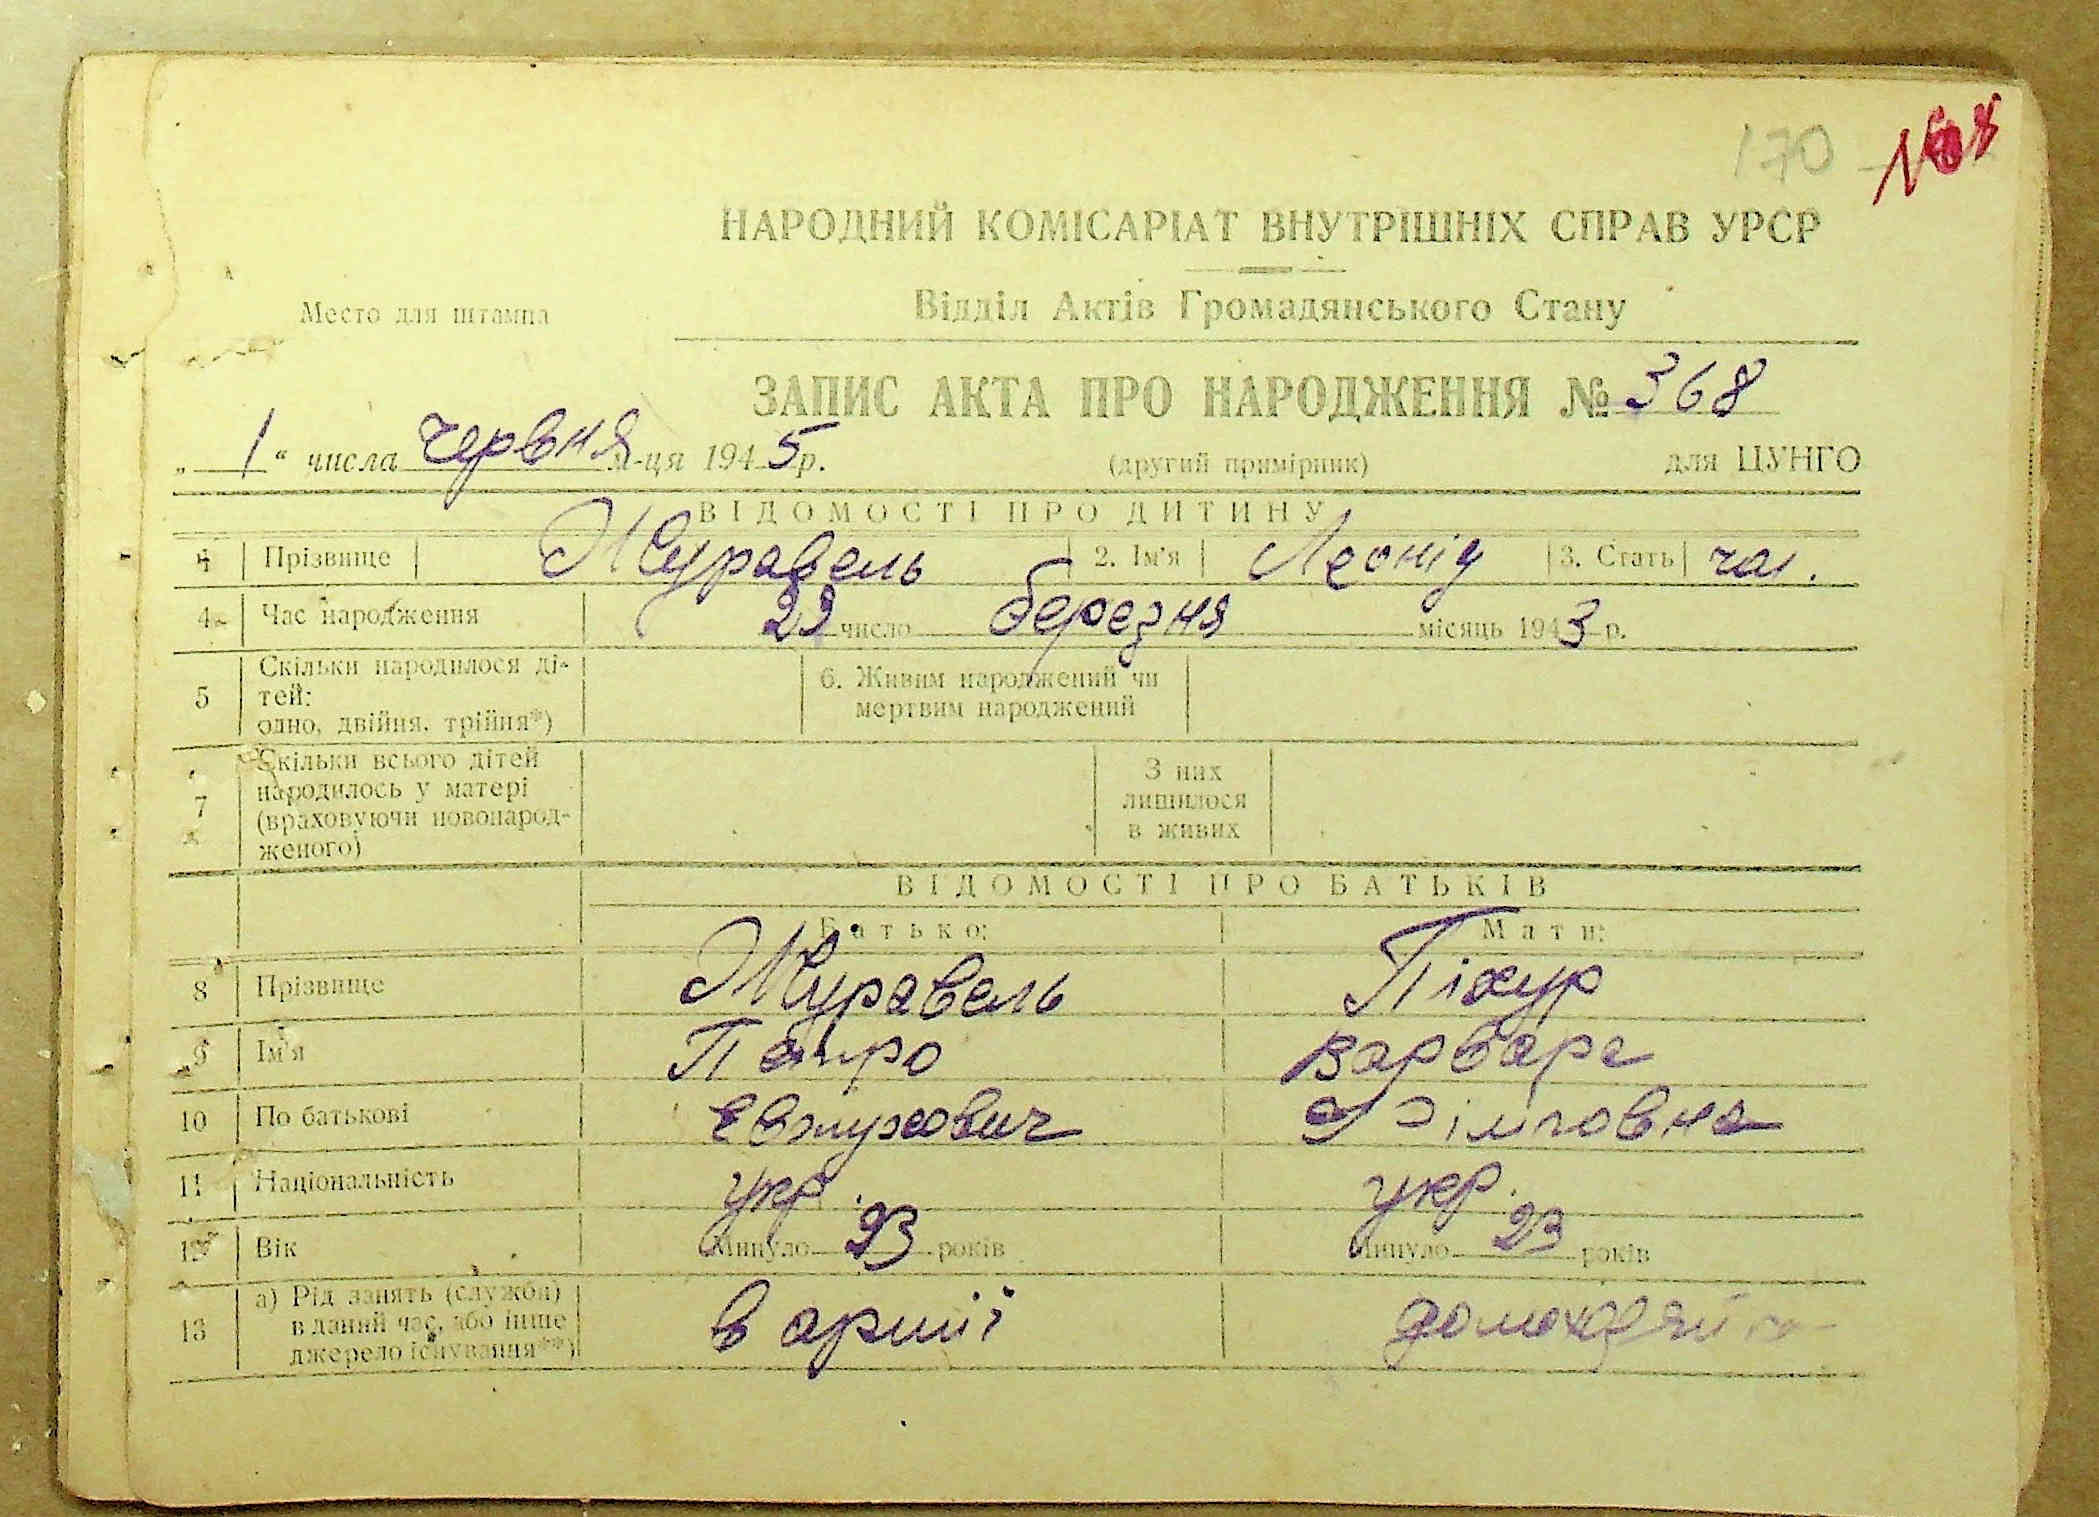 170
НАРОДНИЙ КОМІСАРІАТ ВНУТРІШНІХ СПРАВ УРСР
Место для штампа
Відділ Актів Громадянського Стану
ЗАПИС АКТА ПРО НАРОДЖЕННЯ № 368
„ 1 “ числа червня м-ця 1945 р. (другий примірник) для ЦУНГО
ВІДОМОСТІ ПРО ДИТИНУ
Прізвище Журавель 2. Ім'я Леонід 3. Стать чол.
4 Час народження 29 число березня місяць 1943 р.
5 Скільки народилося ді-
тей:
одно, двійня, трійня*)
6. Живим народжений чи
мертвим народжений
7 Скільки всього дітей
народилось у матері
(враховуючи новонарод-
женого)
З них
лишилося
в живих
ВІДОМОСТІ ПРО БАТЬКІВ
Батько: Мати:
8 Прізвище Журавель Піхур
9 Ім'я Петро Варвара
10 По батькові Євтухович
11 Національність укр. укр.
12 Вік Минуло 23 років Минуло 23 років
13 а) Рід занять (служби)
в даний час, або інше
джерело існування**)
в армії домохазяйка